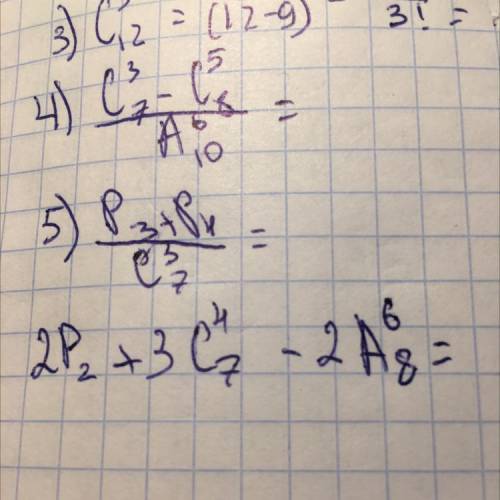 3) C₁₂ = (12-9) 3! =
4) (C₇³ - C₈⁵) / A₁₀⁶ =
5) (P₃ + P₄) / C₇³ =
2P₂ + 3C₇⁴ - 2A₈⁶ =